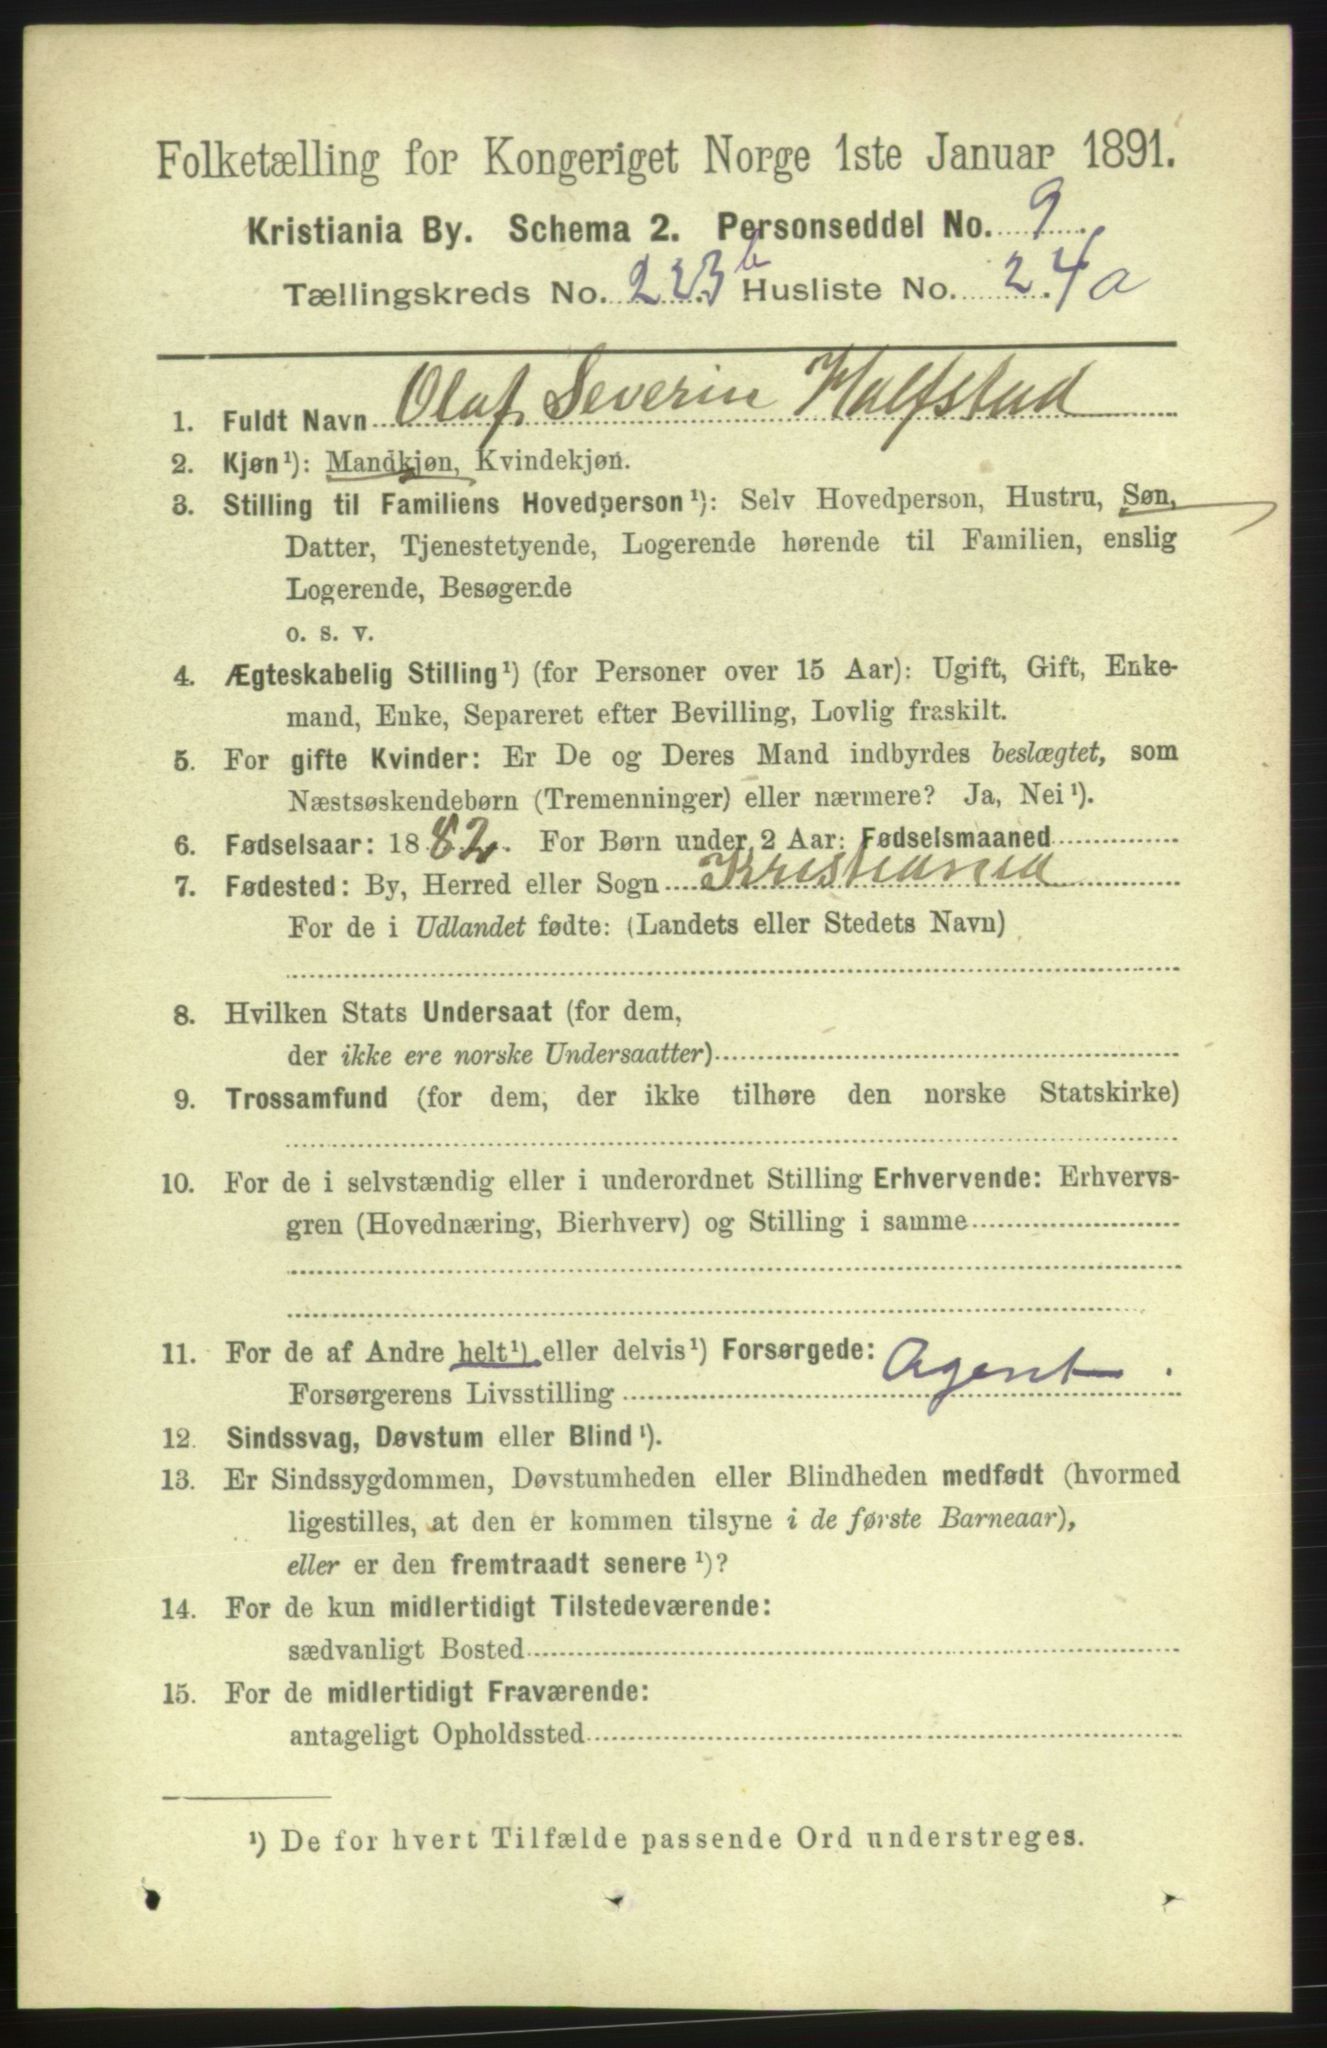 Folketælling for Kongeriget Norge 1ste Januar 1891.
Kristiania By. Schema 2. Personseddel No. 9
Tællingskreds No. 223 b Husliste No. 24 a
1. Fuldt Navn Olaf Severin Halfstad
2. Kjøn¹): Mandkjøn, Kvindekjøn.
3. Stilling til Familiens Hovedperson¹): Selv Hovedperson, Hustru, Søn,
Datter, Tjenestetyende, Logerende hørende til Familien, enslig
Logerende, Besøgende
o. s. v.
4. Ægteskabelig Stilling¹) (for Personer over 15 Aar): Ugift, Gift, Enke-
mand, Enke, Separeret efter Bevilling, Lovlig fraskilt.
5. For gifte Kvinder: Er De og Deres Mand indbyrdes beslægtet, som
Næstsøskendebørn (Tremenninger) eller nærmere? Ja, Nei¹).
6. Fødselsaar: 1882. For Børn under 2 Aar: Fødselsmaaned
7. Fødested: By, Herred eller Sogn Kristiania
For de i Udlandet fødte: (Landets eller Stedets Navn)
8. Hvilken Stats Undersaat (for dem,
der ikke ere norske Undersaatter)
9. Trossamfund (for dem, der ikke tilhøre den norske Statskirke)
10. For de i selvstændig eller i underordnet Stilling Erhvervende: Erhvervs-
gren (Hovednæring, Bierhverv) og Stilling i samme
11. For de af Andre helt¹) eller delvis¹) Forsørgede:
Forsørgerens Livsstilling Agent.
12. Sindssvag, Døvstum eller Blind¹).
13. Er Sindssygdommen, Døvstumheden eller Blindheden medfødt (hvormed
ligestilles, at den er kommen tilsyne i de første Barneaar),
eller er den fremtraadt senere¹)?
14. For de kun midlertidigt Tilstedeværende:
sædvanligt Bosted
15. For de midlertidigt Fraværende:
antageligt Opholdssted
¹) De for hvert Tilfælde passende Ord understreges.